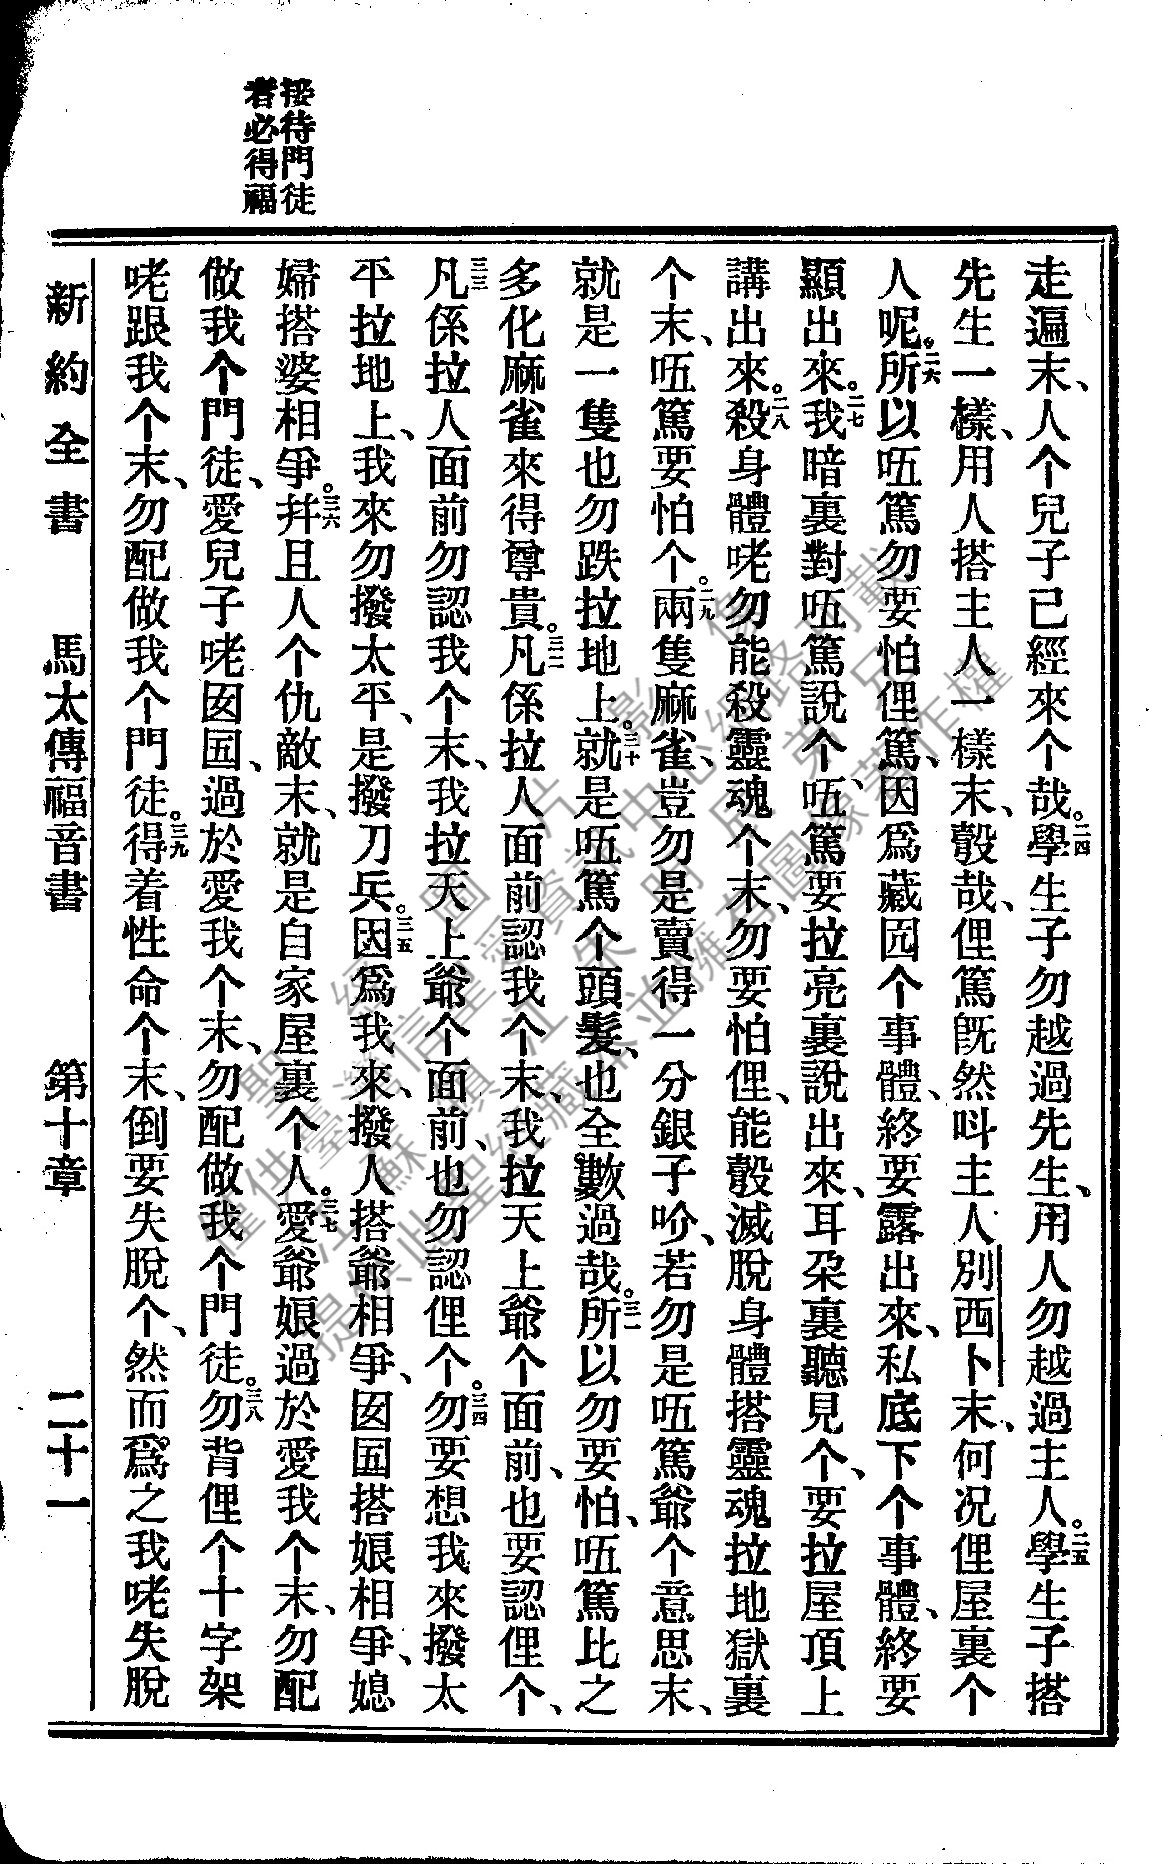 接待門徒
者必得福
走遍末、人个兒子已經來个哉。二四學生子勿越過先生、用人勿越過主人。二五學生子搭
先生一樣、用人搭主人一樣末、彀哉、俚篤旣然呌主人別西卜末、何況俚屋裏个
人呢。二六所以㕶篤勿要怕俚篤、因爲藏囥个事體、終要露出來、私底下个事體、終要
顯出來。二七我暗裏對㕶篤說个、㕶篤要拉亮裏說出來、耳朶裏聽見个、要拉屋頂上
講出來。二八殺身體咾勿能殺靈魂个末、勿要怕俚、能彀滅脫身體搭靈魂拉地獄裏
个末、㕶篤要怕个。二九兩隻麻雀、豈勿是賣得一分銀子吤、若勿是㕶篤爺个意思末、
就是一隻也勿跌拉地上。三十就是㕶篤个頭髮、也全數過哉。三一所以勿要怕、㕶篤比之
多化麻雀來得尊貴。三二凡係拉人面前認我个末、我拉天上爺个面前、也要認俚个、
三三凡係拉人面前勿認我个末、我拉天上爺个面前、也勿認俚个。三四勿要想我來撥太
平拉地上、我來勿撥太平、是撥刀兵。三五因爲我來、撥人搭爺相爭、囡囯搭娘相爭、媳
婦搭婆相爭。三六幷且人个仇敵末、就是自家屋裏个人。三七愛爺娘過於愛我个末、勿配
做我个門徒、愛兒子咾囡囯、過於愛我个末、勿配做我个門徒。三八勿背俚个十字架
咾跟我个末、勿配做我个門徒。三九得着性命个末、倒要失脫个、然而爲之我咾失脫
新約全書 馬太傳福音書 第十章 二十一
聖經圖片影像
僅供臺灣信望愛資訊中心網路刊載
江蘇鎮江朱明民弟兄
提供此聖經藏本並擁有圖像著作權